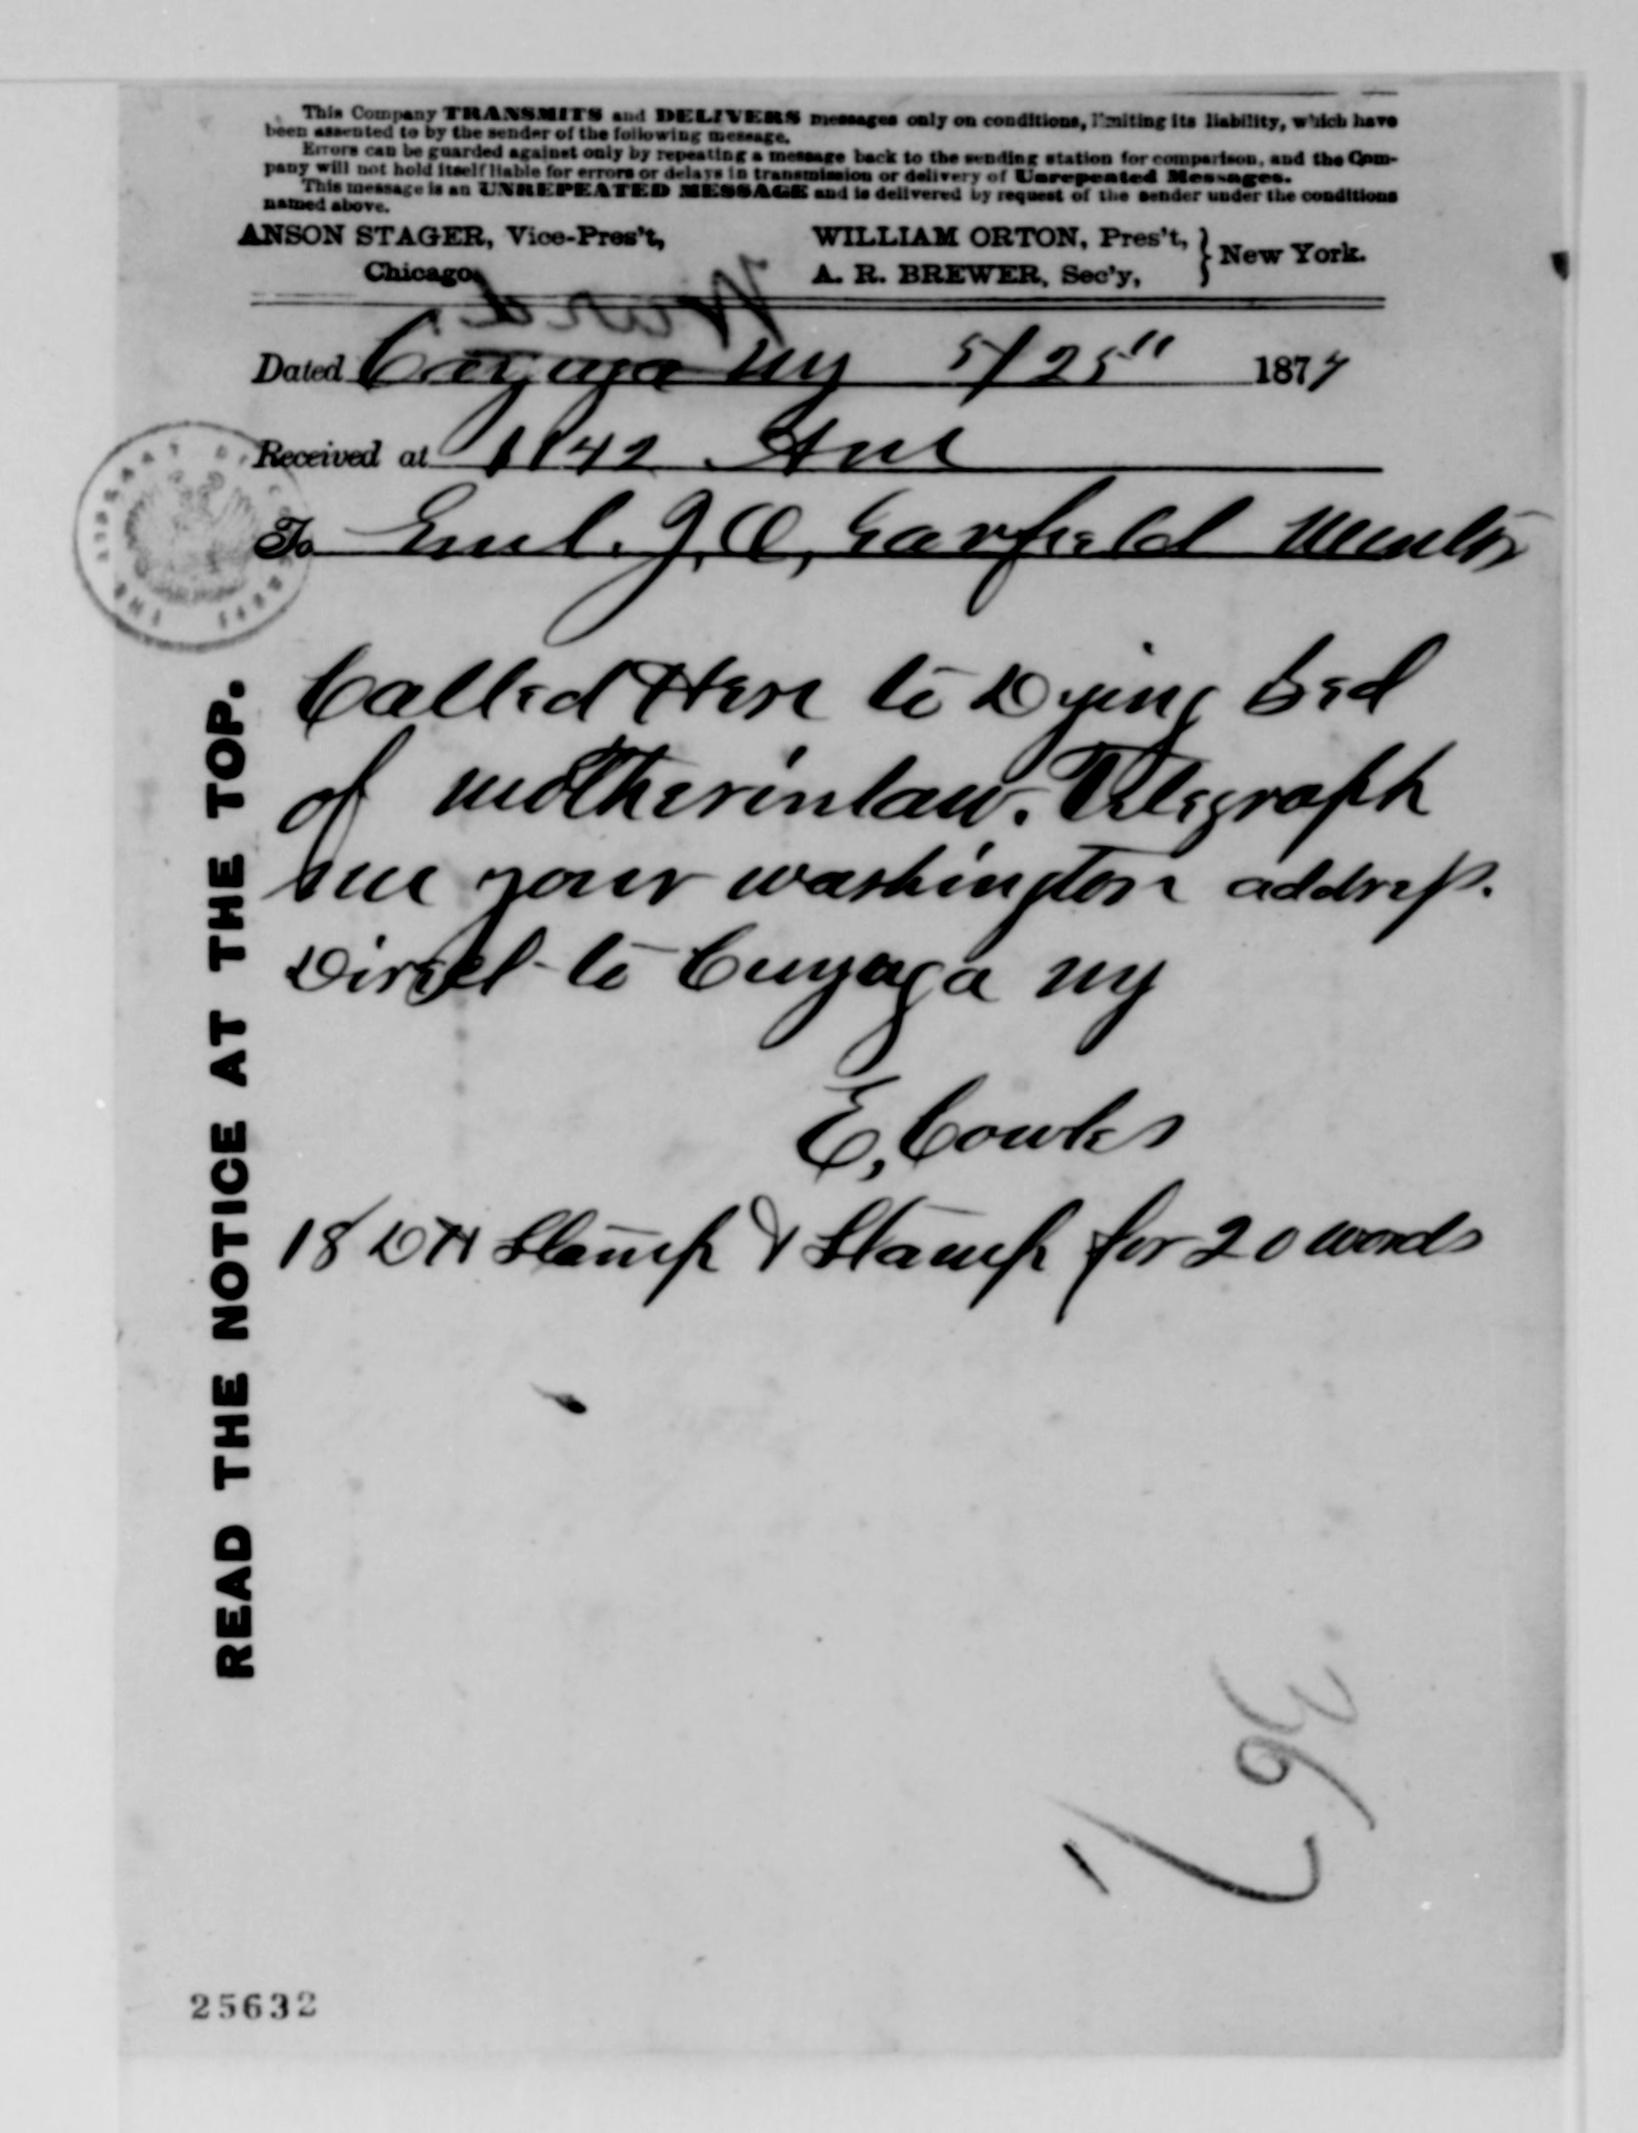 This Company TRANSMITS and DELIVERS messages only on conditions, limiting its liability, which have
been assented to by the sender of the following message.
Errors can be guarded against only by repeating a message back to the sending station for comparison, and the Com-
pany will not hold itself liable for errors or delays in transmission or delivery of Unrepeated Messages.
This message is an UNREPEATED MESSAGE and is delivered by request of the sender under the conditions
named above.
ANSON STAGER, Vice-Pres't,
Chicago
WILLIAM ORTON, Pres't,
A. R. BREWER, Sec'y,
} New York.
Dated Cayuga NY 5/25" 1877
Received at 1142 Am
To Genl. J, A, Garfield Mentor
Called Here to Dying bed
of motherinlaw. Telegraph
me your washington address.
Direct to Cuyaga NY
E, Cowles
18 DH Stamp & Stamp for 20 words
READ THE NOTICE AT THE TOP.
367
25632